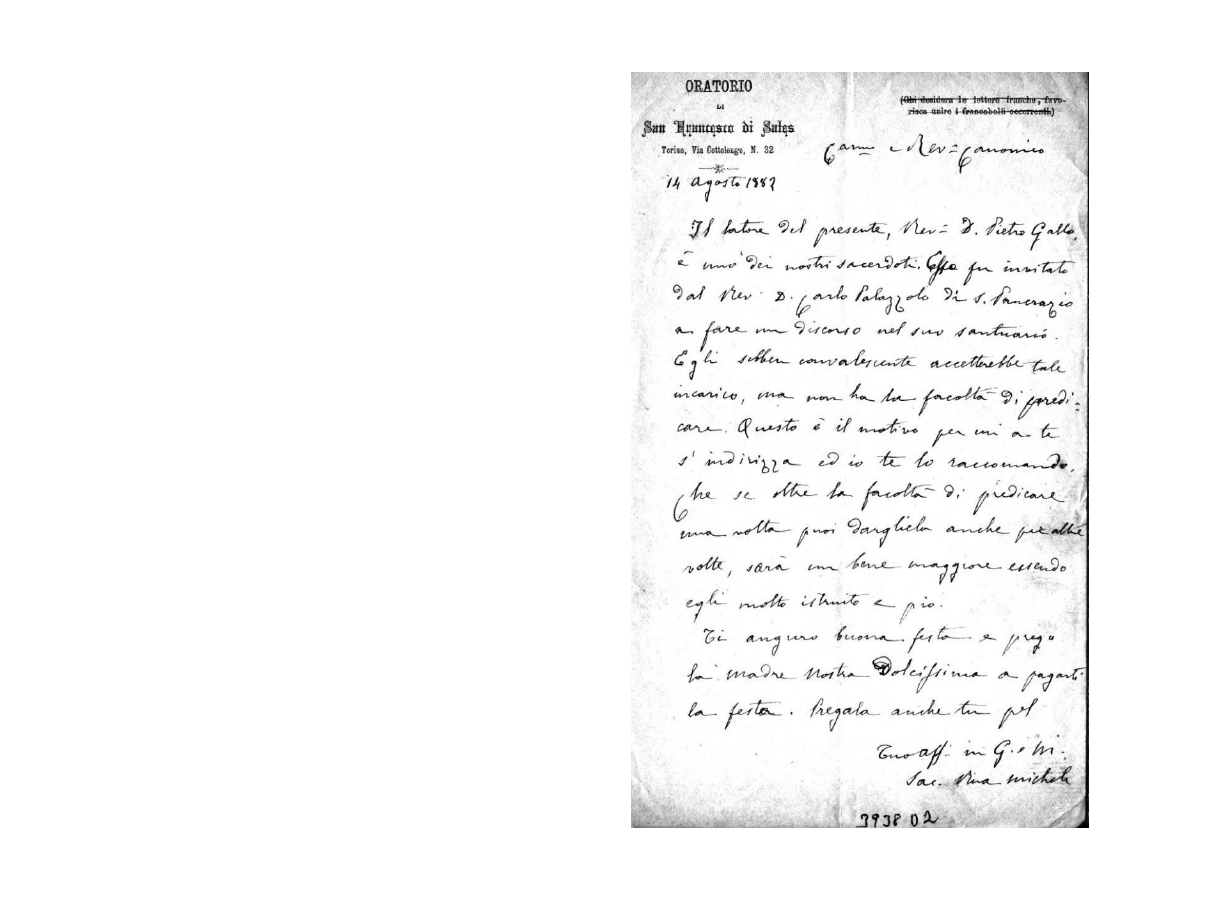 ORATORIO
DI
San Francesco di Sales
Torino, Via Cottolengo, N. 32
(Chi desidera le lettere franche, favo-
risca unire i francobolli occorrenti.)
Car.mo e Rev.= Canonico
14 Agosto 1882
Il latore del presente, Rev.= D. Pietro Gallo,
è uno dei nostri sacerdoti. Esso fu invitato
dal Rev. D. Carlo Palazzolo di S. Pancrazio
a fare un discorso nel suo santuario.
Egli sebben convalescente accetterebbe tale
incarico, ma non ha la facoltà di predi=
care. Questo è il motivo per cui a te
s'indirizza ed io te lo raccomando.
Che se oltre la facoltà di predicare
una volta puoi dargliela anche per altre
volte, sarà un bene maggiore essendo
egli molto istruito e pio.
Ti auguro buona festa e prego
la madre nostra Dolcissima a pagarti
la festa. Pregala anche tu pel
Tuo aff. in G. e M.
Sac. Rua Michele
3938 D2